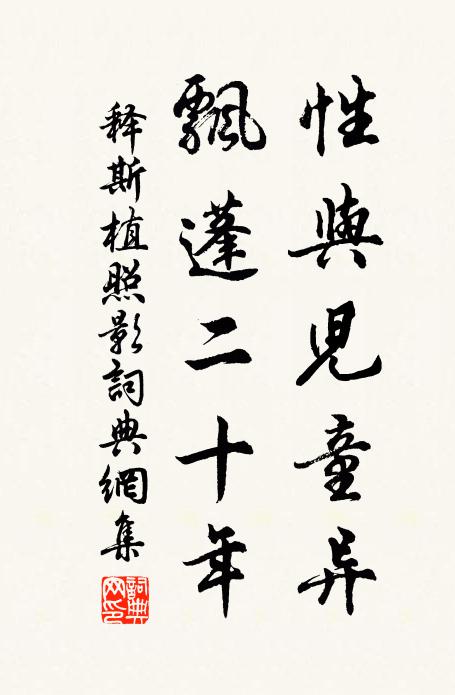 性與児童异
飄蓬二十年
释斯植照影詞典網集
詞典網印